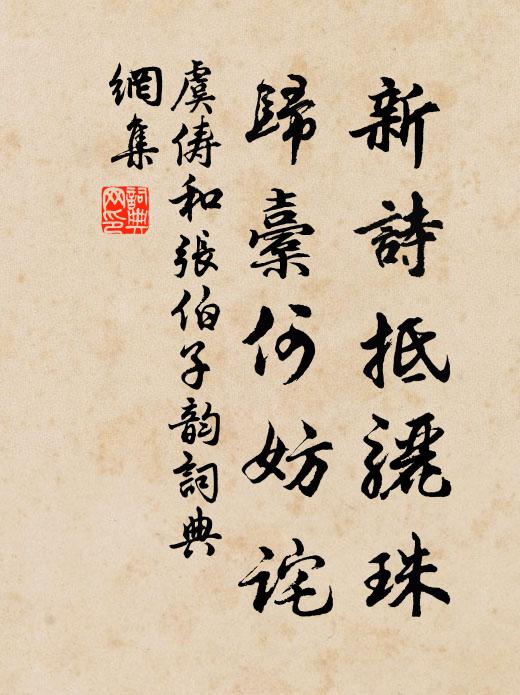 新詩抵驪珠
歸橐何妨詫
虞儔和張伯子韵詞典
網集
詞典網印